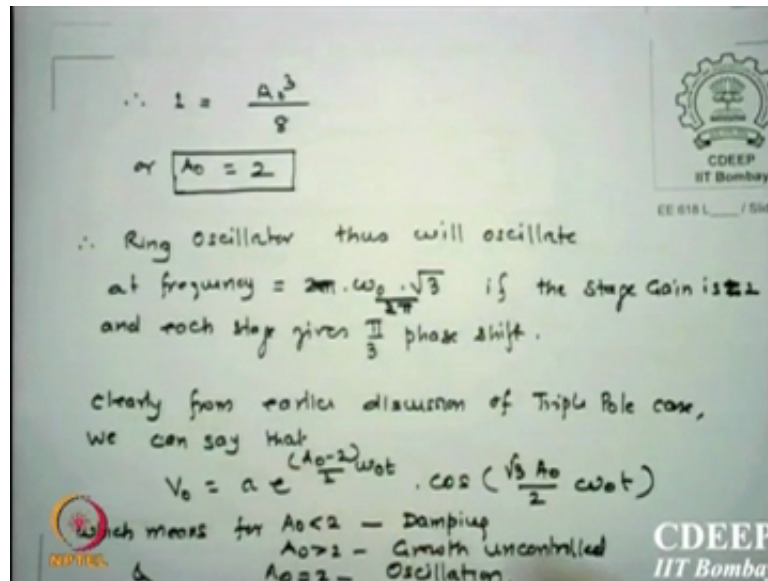 ∴ 1 = A₀³ / 8
or A₀ = 2
CDEEP
IIT Bombay
EE 618 L____ / Slid
∴ Ring Oscillator thus will oscillate
at frequency = ω₀ · √3 / 2π if the Stage Gain is ≥ 2
and each stage gives π/3 phase shift.
Clearly from earlier discussion of Triple Pole case,
we can say that
V₀ = a e^((A₀-2)/2 ω₀t) . cos (√3 A₀ / 2 ω₀t)
which means for A₀<2 - Damping
A₀>2 - Growth uncontrolled
& A₀=2 - Oscillation
NPTEL
CDEEP
IIT Bombay